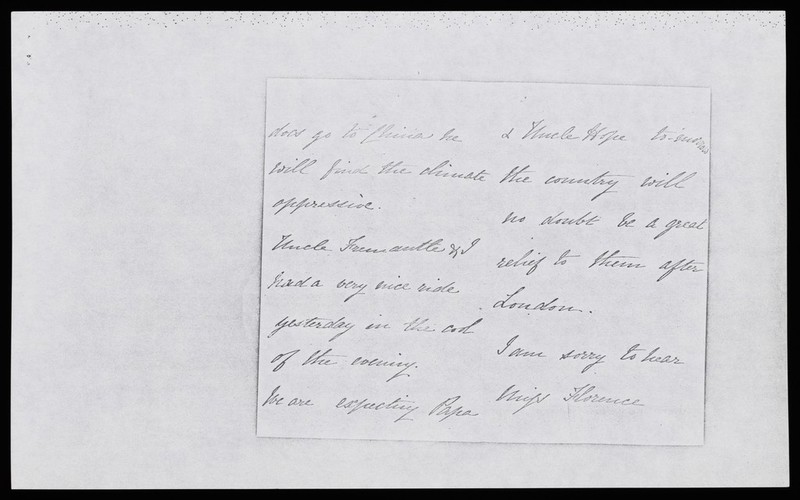 does go to China he
will find the climate
oppressive.
Uncle Fremantle & I
had a very nice ride
yesterday in the cool
of the evening.
We are expecting Papa
& Uncle Hope to-morrow
the country will
no doubt be a great
relief to them after
London.
I am sorry to hear
Miss Florence